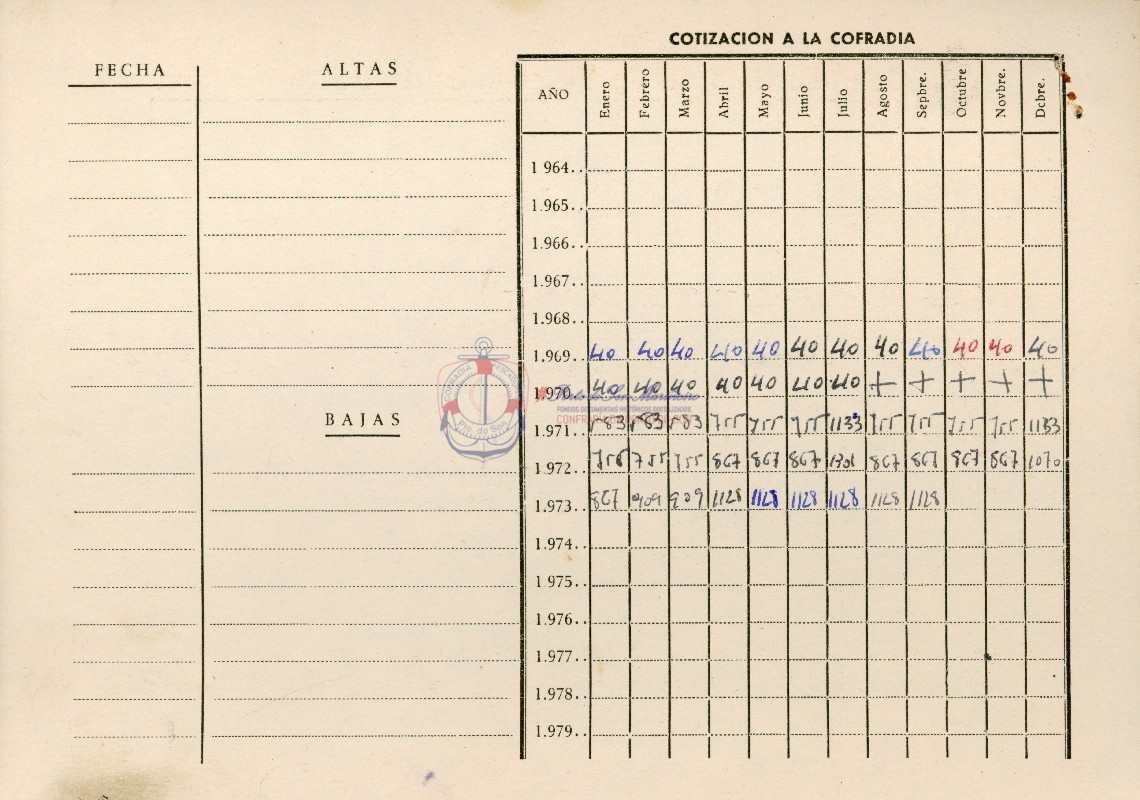 COTIZACION A LA COFRADIA
FECHA ALTAS
AÑO Enero Febrero Marzo Abril Mayo Junio Julio Agosto Sepbre. Octubre Novbre. Dcbre.
1 964..
1.965..
1.966..
1.967..
1.968..
1.969. 40 40 40 40 40 40 40 40 40 40 40 40
1.970. 40 40 40 40 40 40 40 + + + + +
BAJAS
1.971. 755 755 755 1133 755 755 755 755 1133
1.972. 755 755 867 867 867 867 867 867 867 1070
1.973. 867 909 909 1128 1128 1128 1128 1128 1128
1.974..
1 975..
1.976..
1.977..
1.978..
1.979..
COFRADIA
Pto. do Son
FONDOS DOCUMENTAIS HISTÓRICOS DIXITALIZADOS